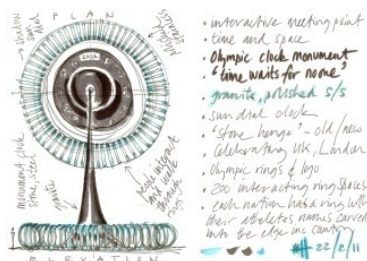 PLAN
shadow
dial
2012
monument clock
stone, steel
people interact
and walk
through
rings
ELEVATION
• interactive meeting point
• time and space
• Olympic clock monument
• "time waits for none"
• granite, polished s/s
• sun dial clock
• "stone henge" - old/new
• Celebrating UK, London
• Olympic rings & logo
• 200 interacting ring spaces
• each nation has a ring with
their athletes names carved
into the edge inc country
22/2/11